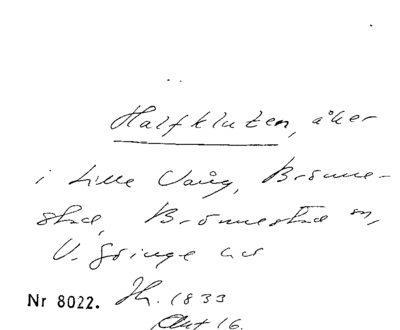 Halfkluten, åker
i Lille Vång, Brönne-
stad, Brönnestad sn,
V. Göinge hd
Nr 8022. Jh. 1833
Akt 16.